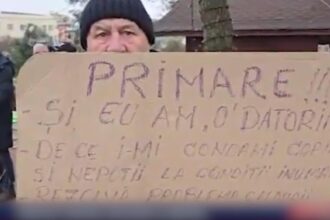 PRIMARE!!!
- ŞI EU AM, O'DATORI
- DE CE I-MI CONDAMI COPI
ŞI NEPOŢII LA CONDIŢII INUMA
- REZOLVĂ PROBLEMA